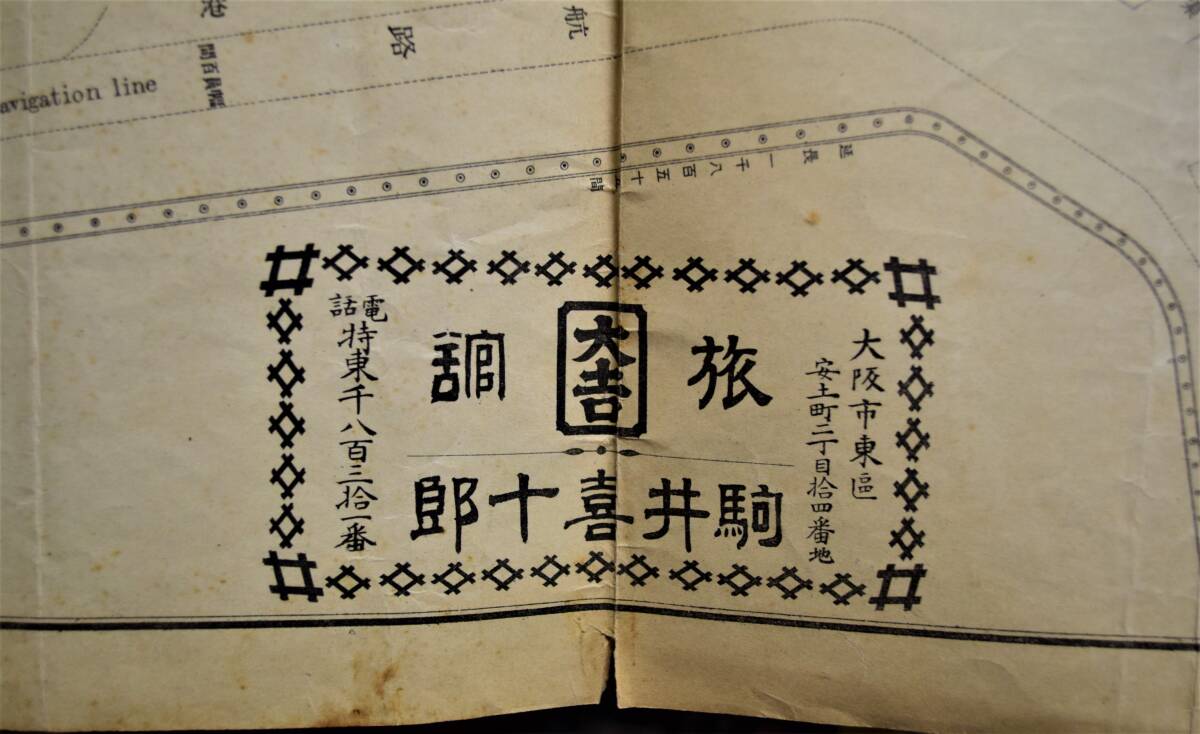 港
航
路
avigation line
幅員百間
延長一千八百五十五間
大阪市東區
安土町二丁目拾四番地
旅館
大吉
駒井喜十郎
電話
特東千八百三拾一番